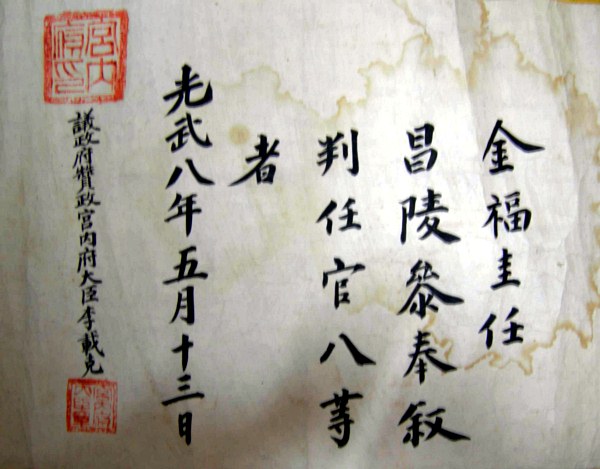 金福圭任
昌陵叅奉叙
判任官八等
者
光武八年五月十三日
宮內府印
議政府贊政宮内府大臣李載克